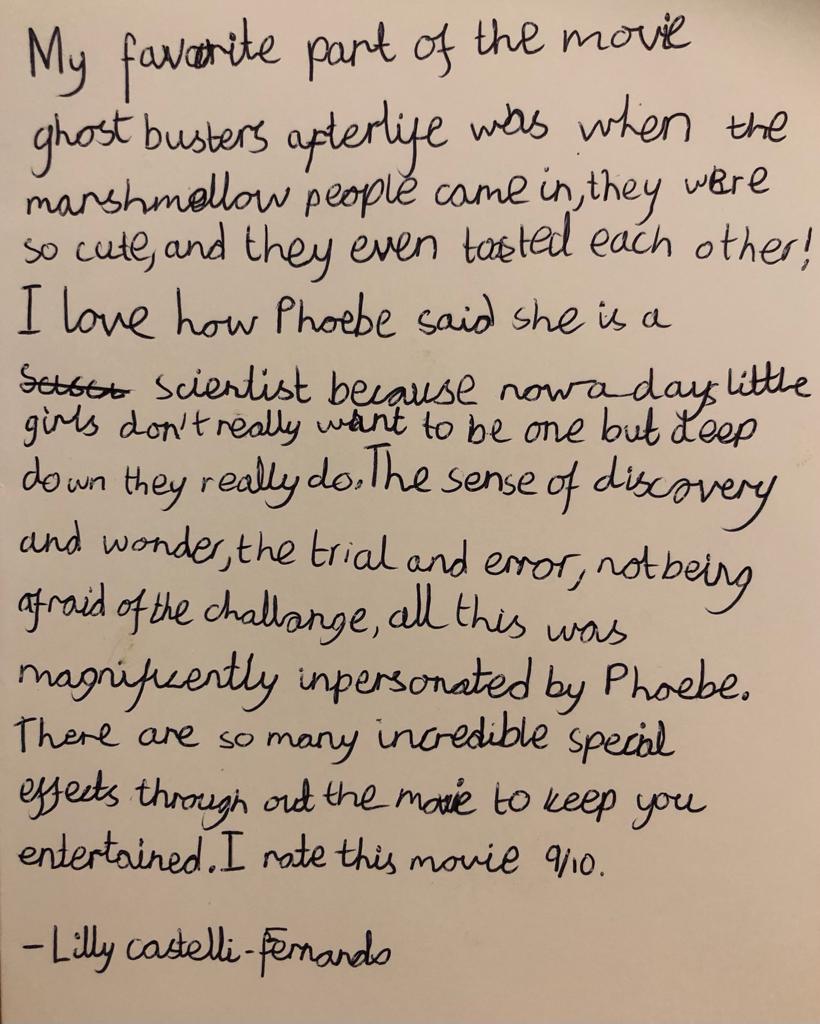 My favorite part of the movie
ghost busters afterlife was when the
marshmellow people came in, they were
so cute, and they even tasted each other!
I love how Phoebe said she is a
scientist because now a days little
girls don't really want to be one but deep
down they really do. The sense of discovery
and wonder, the trial and error, not being
afraid of the challange, all this was
magnificently inpersonated by Phoebe.
There are so many incredible special
effects through out the movie to keep you
entertained. I rate this movie 9/10.
- Lilly Castelli-Fernando